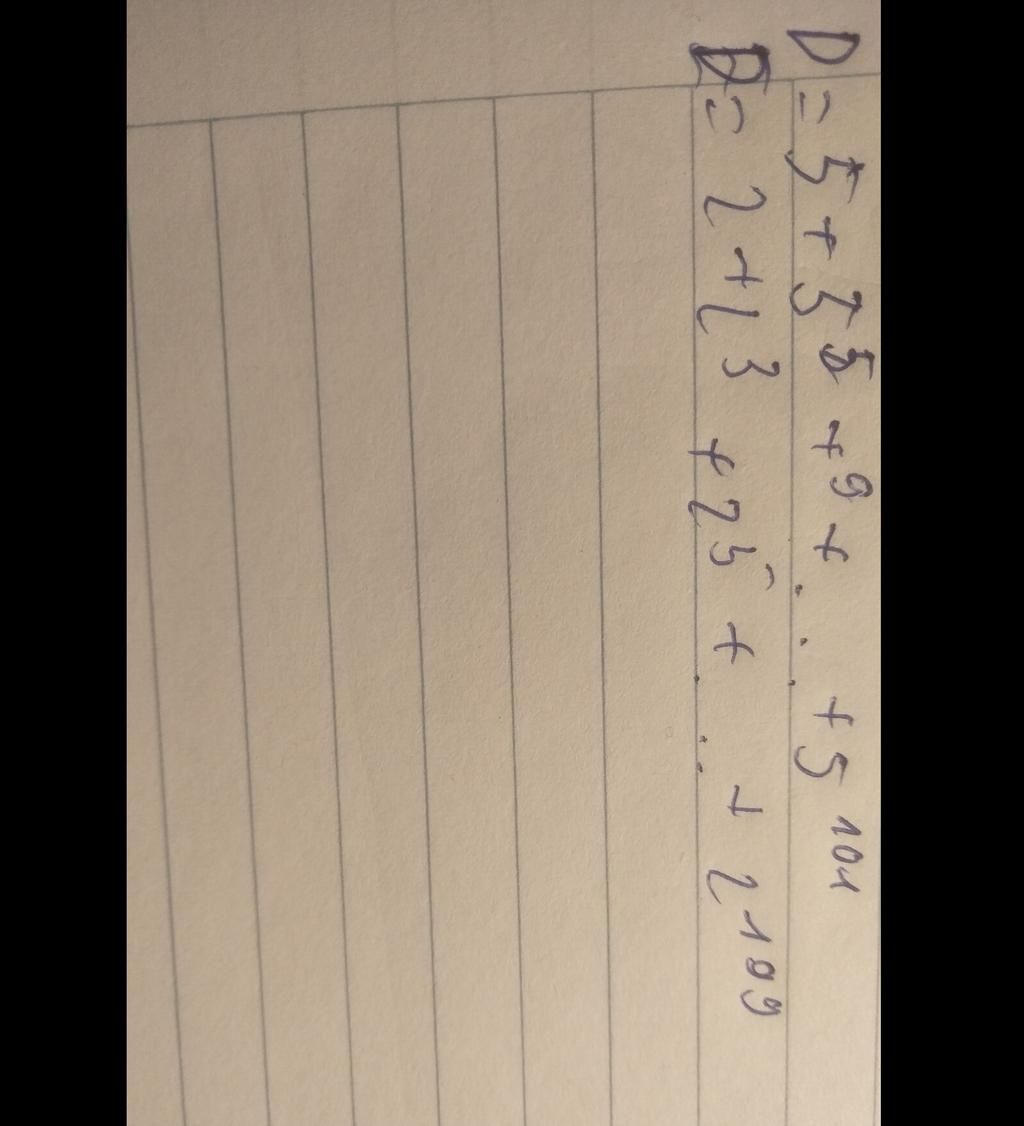 D = 5 + 5⁵ + ⁹ + ... + 5¹⁰¹
E = 2 + 2³ + 2⁵ + ... + 2¹⁰⁹